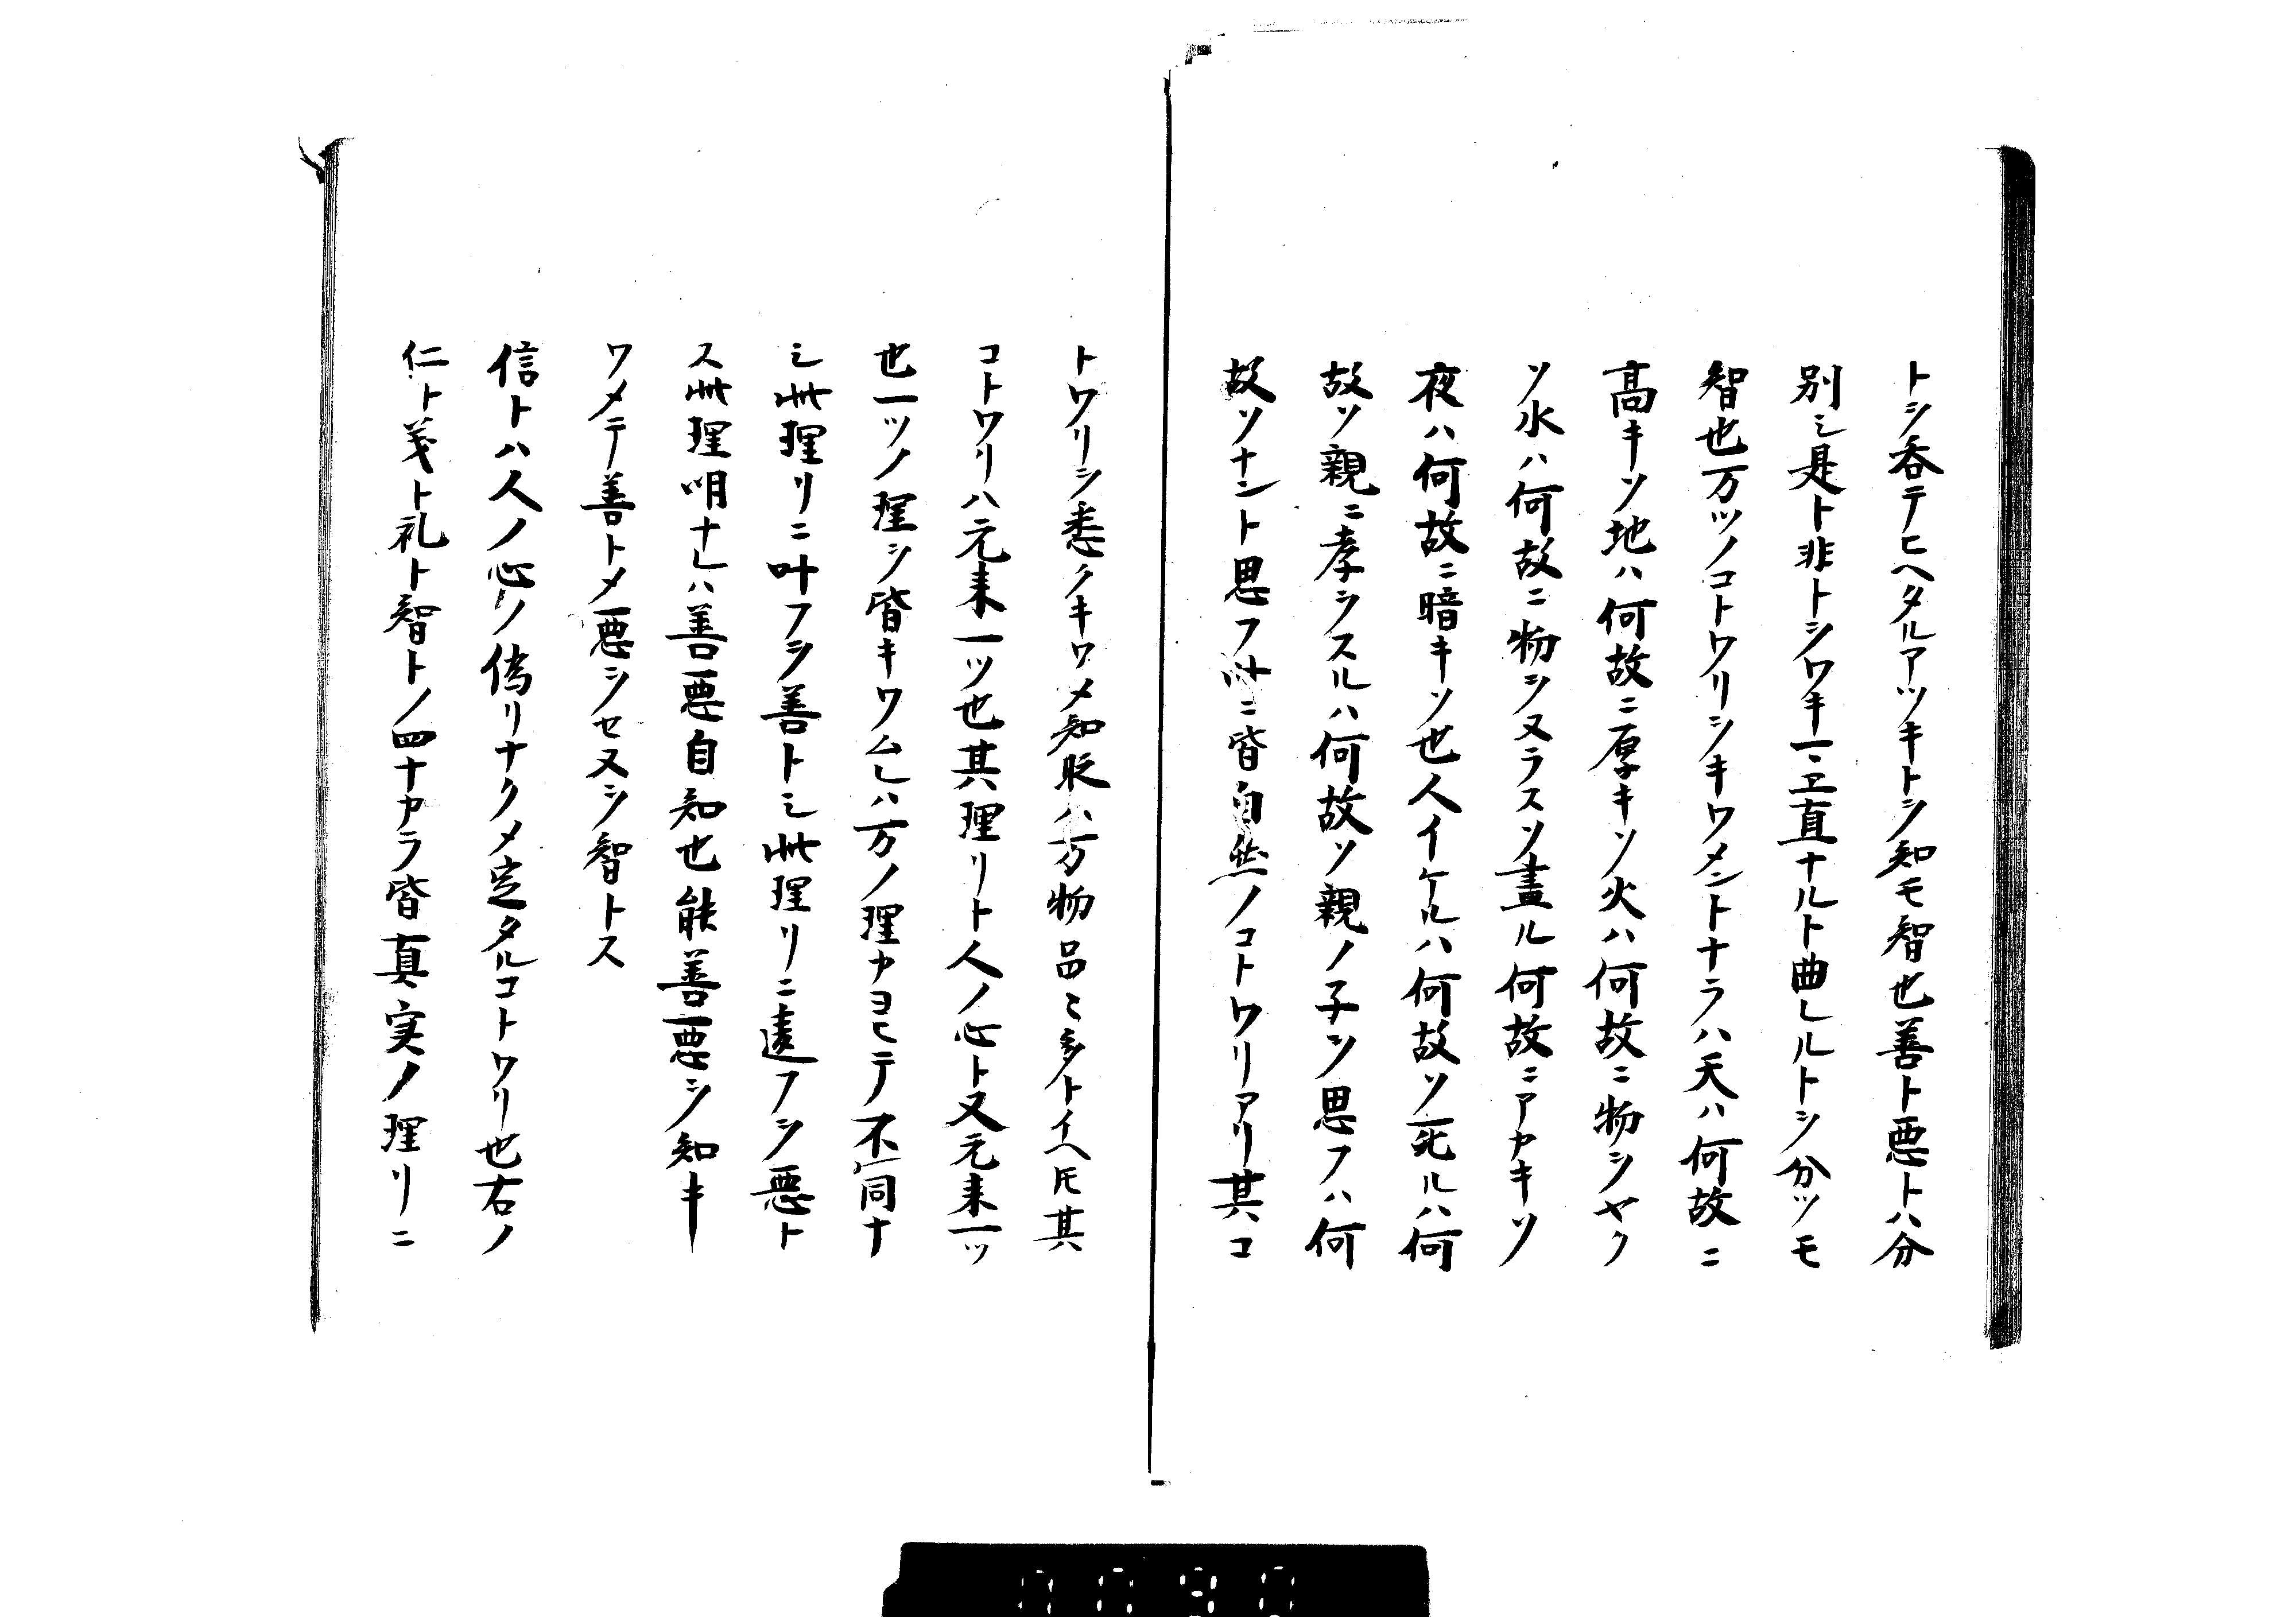 トヲ呑テヒヘタルアツキトヲ知モ智也善ト悪トハ分
別シ是ト非トヲワキマヱ直ナルト曲レルトヲ分ツモ
智也万ツノコトワリヲキワメントナラハ天ハ何故ニ
高キソ地ハ何故ニ厚キソ火ハ何故ニ物ヲヤク
ソ水ハ何故ニ物ヲヌラスソ晝ル何故ニアカキソ
夜ハ何故ニ暗キソ也人イケルハ何故ソ死ルハ何
故ソ親ニ孝ヲスルハ何故ソ親ノ子ヲ思フハ何
故ソナント思フ此ニ皆自然ノコトワリアリ其コ
トワリヲ悉クキワメ知眂ハ万物品〻多トイヘ𪜈其
コトワリハ元来一ツ也其理リト人ノ心ト又元来一ツ
也一ツノ理ヲ皆キワムレハ万ノ理カヨヒテ不同ナ
シ此理リニ叶フヲ善トシ此理リニ違フヲ悪ト
ス此理明ナレハ善悪自知也能善悪ヲ知キ
ワメテ善トメ悪ヲセヌヲ智トス
信トハ人ノ心ノ偽リナクメ定タルコトワリ也右ノ
仁ト義ト礼ト智トノ四ナカラ皆真実ノ理リニ